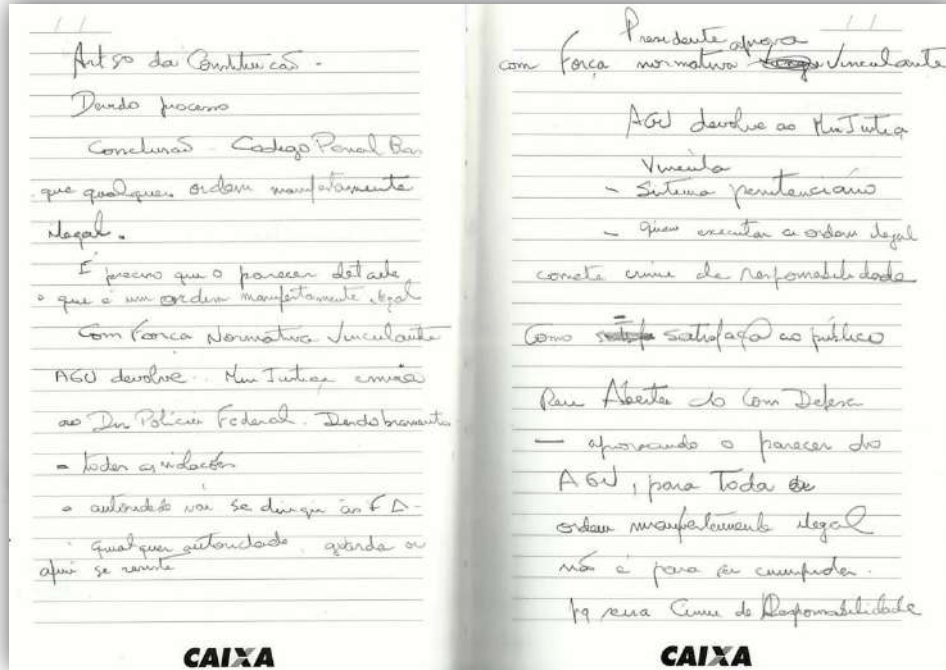 Art 50 da Constituicão -
Devido processo
Conclusão - Codigo Penal
que qualquer ordem manifestamente
ilegal.
É preciso que o parecer detalhe
o que é um ordem manifestamente ilegal
Com Força Normativa Vinculante
AGU devolve Min Justiça
ao Dir Polícia Federal. Desdobramento
- todas
autoridade vai se dirigir às FA-
qualquer autoridade
se
CAIXA
Presidente aprova
com Força normativa Vinculante
AGU devolve ao Min Justiça
Vincula
- Sistema penitenciário
- quem executar a ordem ilegal
comete crime de responsabilidade
Como satisfação ao público
Reu Aberta do Com Defesa
- aprovando o parecer do
AGU, para Toda
ordem manifestamente ilegal
não é para ser cumprida.
pq seria Crime de Responsabilidade
CAIXA